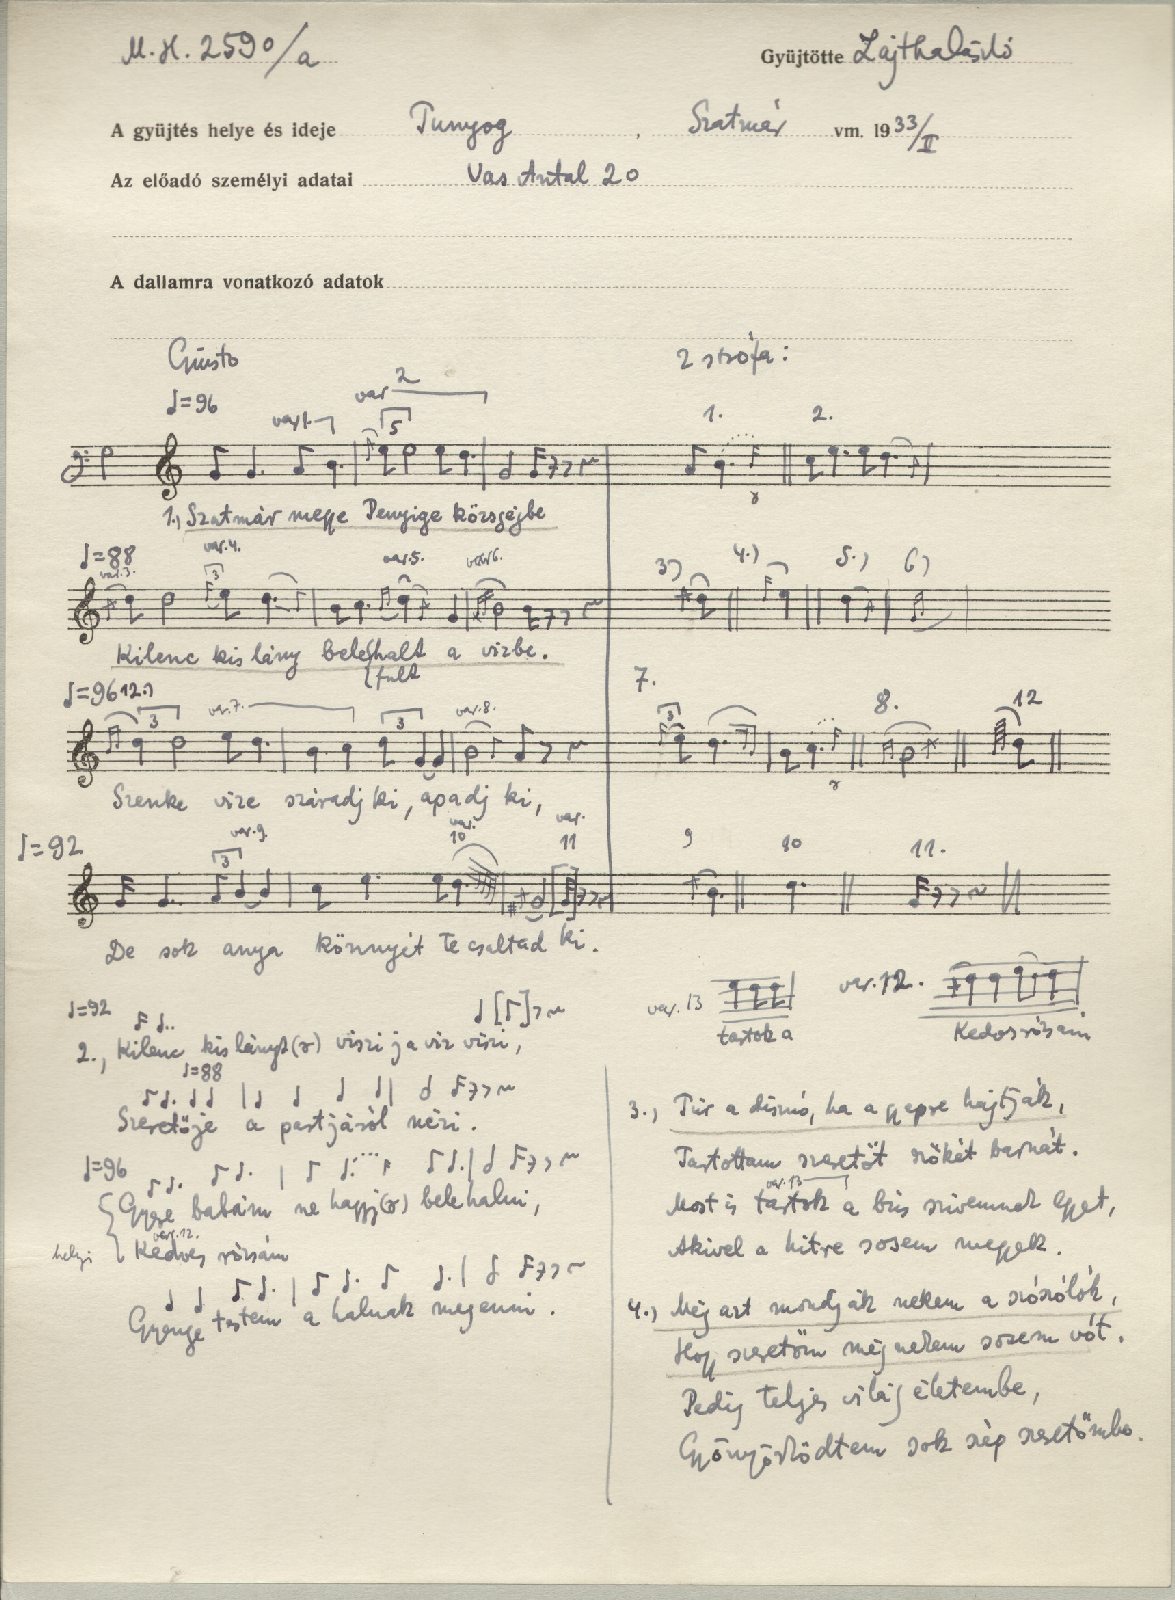 M.H. 2590/a
Gyüjtötte Lajtha László
A gyüjtés helye és ideje Tunyog, Szatmár vm. 1933/II
Az előadó személyi adatai Vas Antal 20
A dallamra vonatkozó adatok
Giusto
2 strófa:
♩=96 var 1. var 2
5
1. 2.
1., Szatmár megye Penyige községbe
♩=88 var. 3. var. 4. var. 5. var 6.
3
3) 4.) 5.) 6)
Kilenc kis lány bele{halt a vizbe.
{fult
♩=96 12.) var. 7. var. 8.
3 3
7. 8. 12
3
Szenke vize száradj ki, apadj ki,
♩=92 var. 9. var. 10 var. 11
3
9 10 11.
De sok anya könnyét te csaltad ki.
var. 13 var. 12.
tartok a Kedves rózsám
♩=92
2., Kilenc kis lányt(r) viszi ja viz viszi,
♩=88
Szeretője a partjáról nézi.
♩=96
Gyere babám ne hagyj(r) belehalni,
var. 12.
helyi Kedves rózsám
Gyenge testem a halnak megenni.
3., Túr a disznó, ha a gyepre hajtják,
Tartottam szeretőt szőkét barnát.
var. 13
Most is tartok a bús szivemnek egyet,
Akivel a hitre sosem megyek.
4., Még azt mondják nekem a szószólók,
Hogy szeretőm még nekem sosem vót.
Pedig teljes világ életembe,
Gyönyörködtem sok szép szeretőmbe.